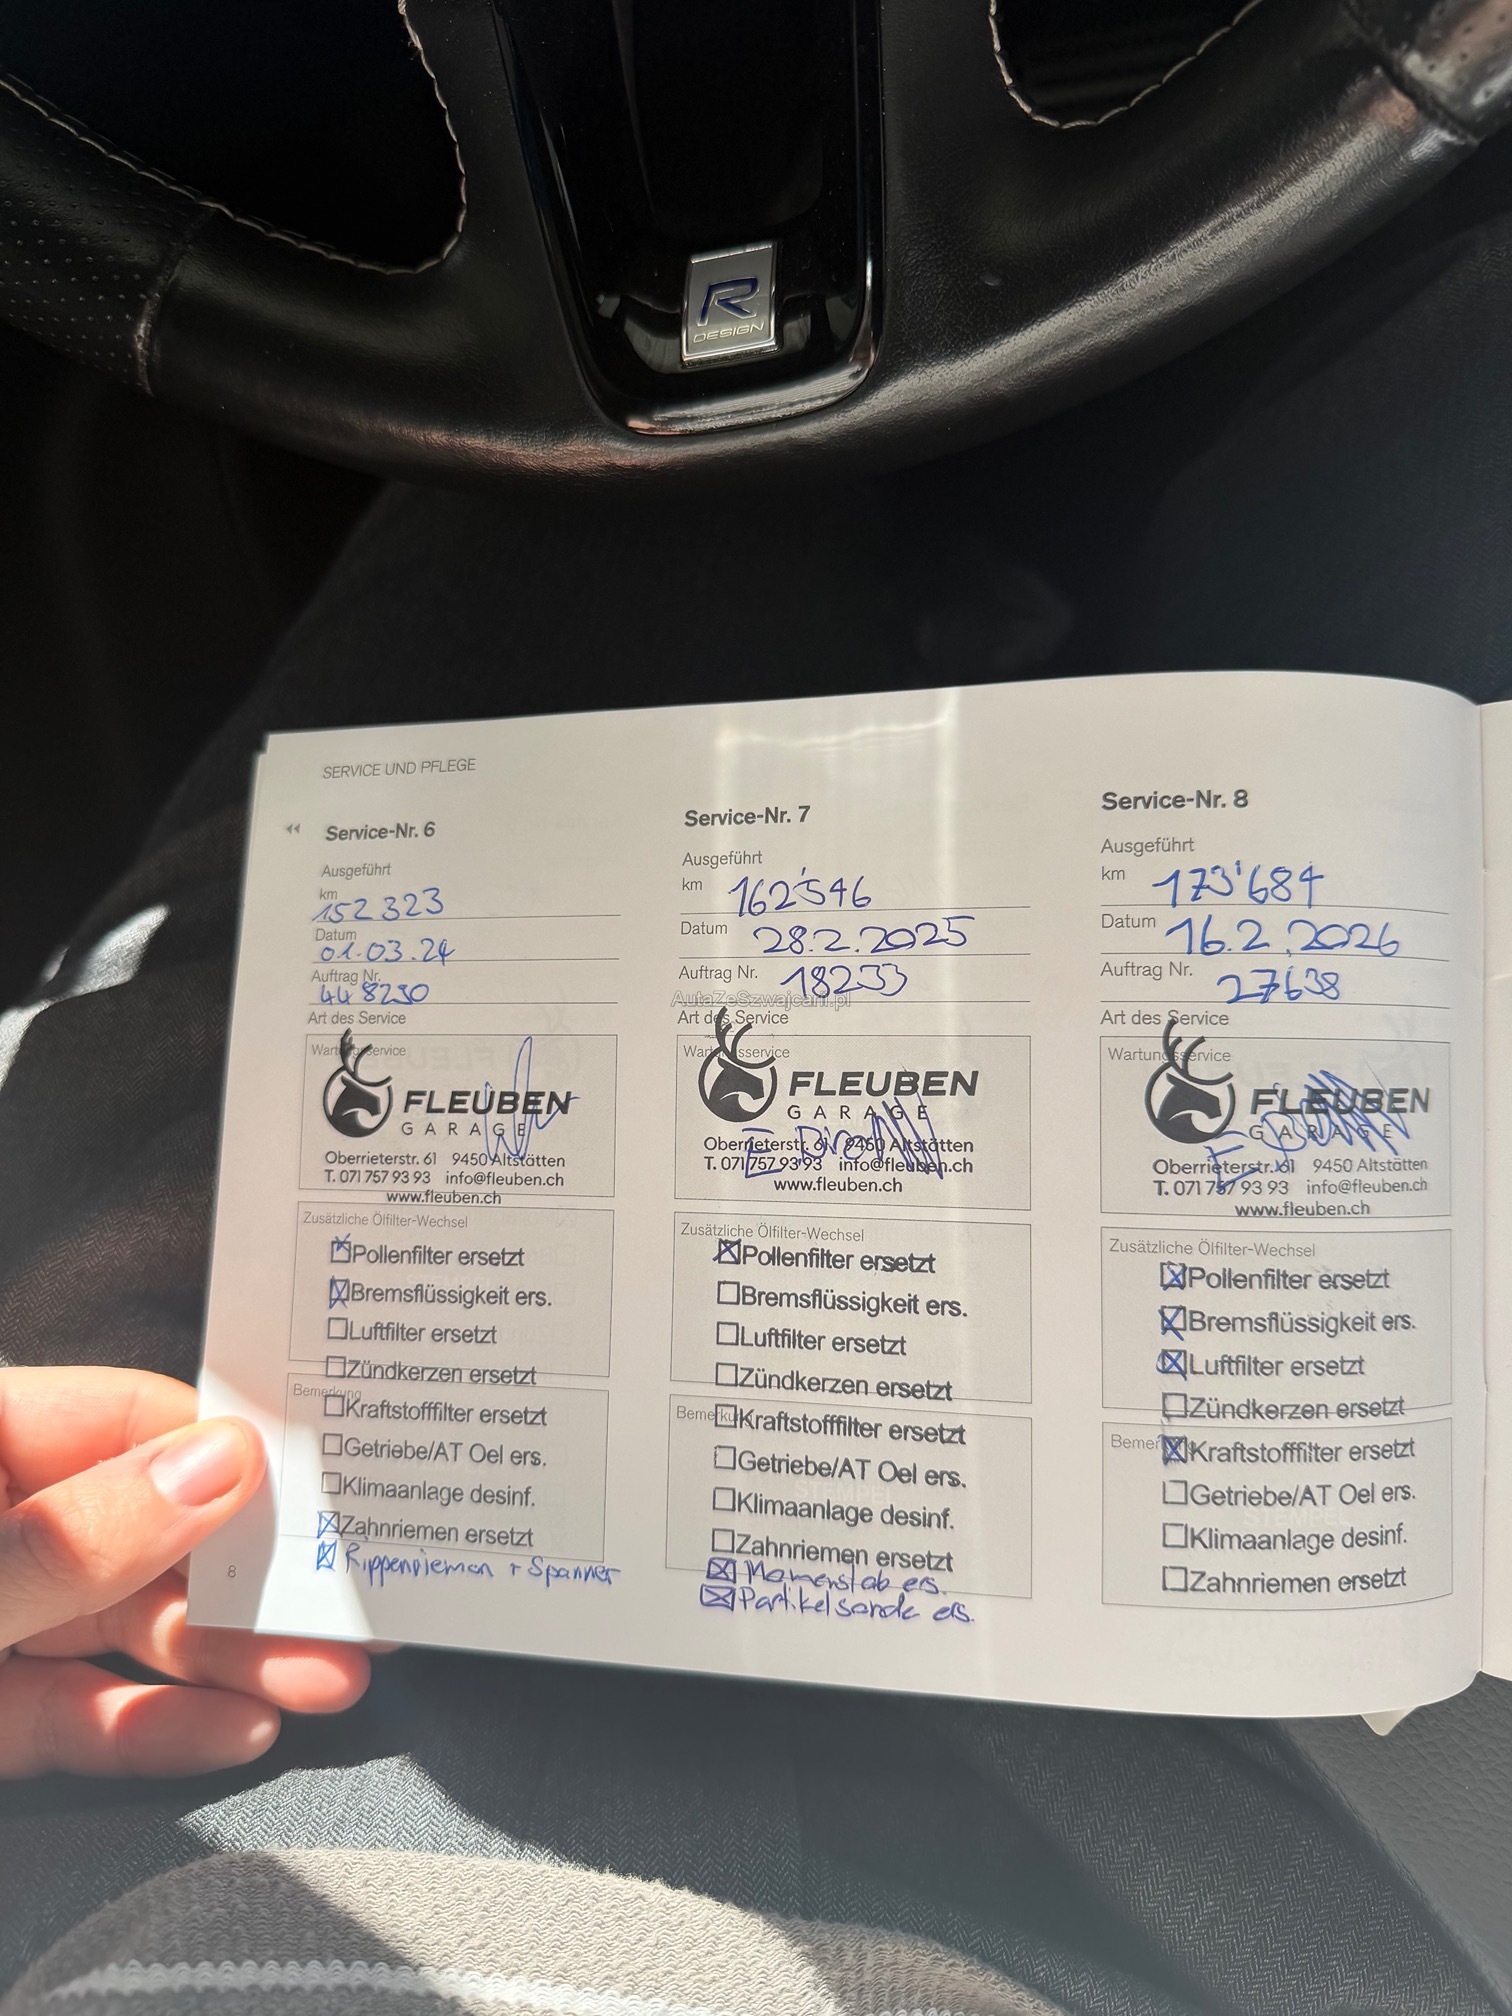 R
DESIGN
SERVICE UND PFLEGE
Service-Nr. 6
Ausgeführt
km 152 323
Datum 01.03.24
Auftrag Nr. 448230
Art des Service
Wartungsservice
FLEUBEN
GARAGE
Oberrieterstr. 61 9450 Altstätten
T. 071 757 93 93 info@fleuben.ch
www.fleuben.ch
Zusätzliche Ölfilter-Wechsel
Pollenfilter ersetzt
Bremsflüssigkeit ers.
Luftfilter ersetzt
Zündkerzen ersetzt
Bemerkung
Kraftstofffilter ersetzt
Getriebe/AT Oel ers.
Klimaanlage desinf.
Zahnriemen ersetzt
Rippenriemen + Spanner
8
Service-Nr. 7
Ausgeführt
km 162'546
Datum 28.2.2025
Auftrag Nr. 18233
AutaZeSzwajcarii.pl
Art des Service
Wartungsservice
FLEUBEN
GARAGE
Oberrieterstr. 61 9450 Altstätten
T. 071 757 93 93 info@fleuben.ch
www.fleuben.ch
Zusätzliche Ölfilter-Wechsel
Pollenfilter ersetzt
Bremsflüssigkeit ers.
Luftfilter ersetzt
Zündkerzen ersetzt
Bemerkung
Kraftstofffilter ersetzt
Getriebe/AT Oel ers.
Klimaanlage desinf.
Zahnriemen ersetzt
ers.
Partikelsonde ers.
Service-Nr. 8
Ausgeführt
km 173'684
Datum 16.2.2026
Auftrag Nr. 27638
Art des Service
Wartungsservice
FLEUBEN
GARAGE
Oberrieterstr. 61 9450 Altstätten
T. 071 757 93 93 info@fleuben.ch
www.fleuben.ch
Zusätzliche Ölfilter-Wechsel
Pollenfilter ersetzt
Bremsflüssigkeit ers.
Luftfilter ersetzt
Zündkerzen ersetzt
Kraftstofffilter ersetzt
Getriebe/AT Oel ers.
Klimaanlage desinf.
Zahnriemen ersetzt